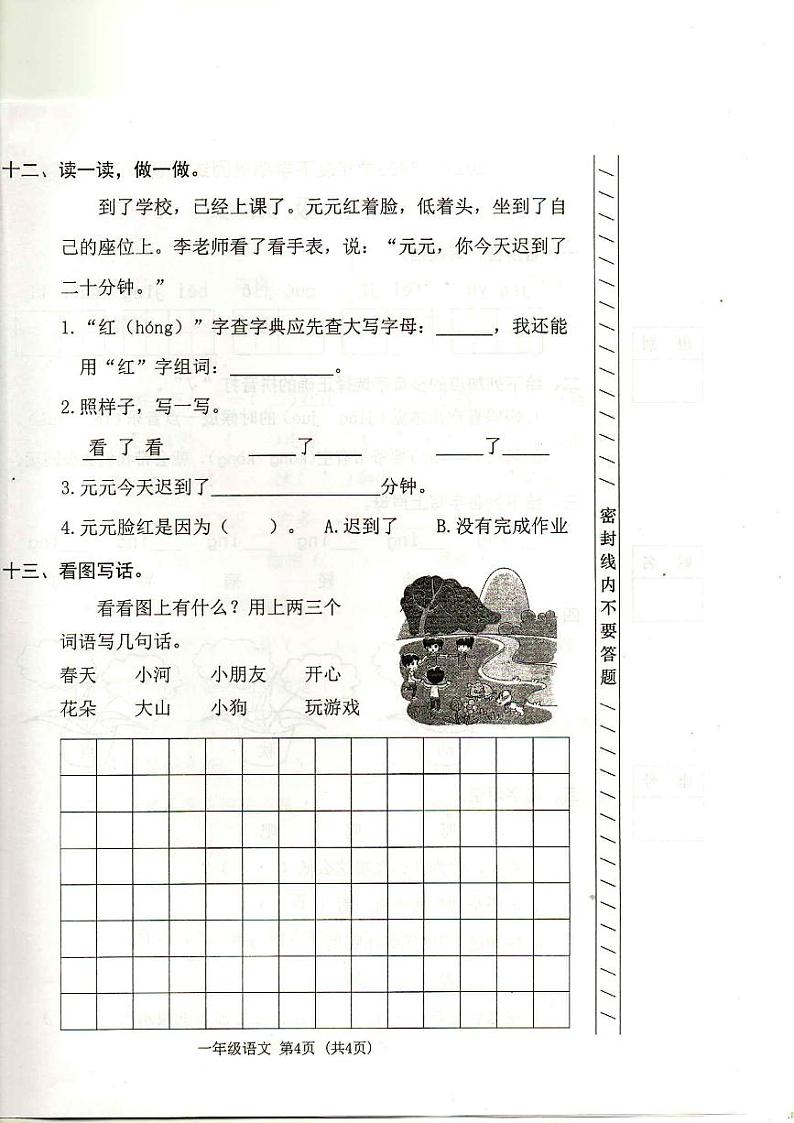 十二、读一读，做一做。
到了学校，已经上课了。元元红着脸，低着头，坐到了自
己的座位上。李老师看了看手表，说：“元元，你今天迟到了
二十分钟。”
1.“红（hóng）”字查字典应先查大写字母：______，我还能
用“红”字组词：___________。
2.照样子，写一写。
看了看 ______了______ ______了______
3.元元今天迟到了__________________分钟。
4.元元脸红是因为（　　）。 A.迟到了 B.没有完成作业
十三、看图写话。
看看图上有什么？用上两三个
词语写几句话。
春天 小河 小朋友 开心
花朵 大山 小狗 玩游戏
一年级语文 第4页 (共4页)
密封线内不要答题